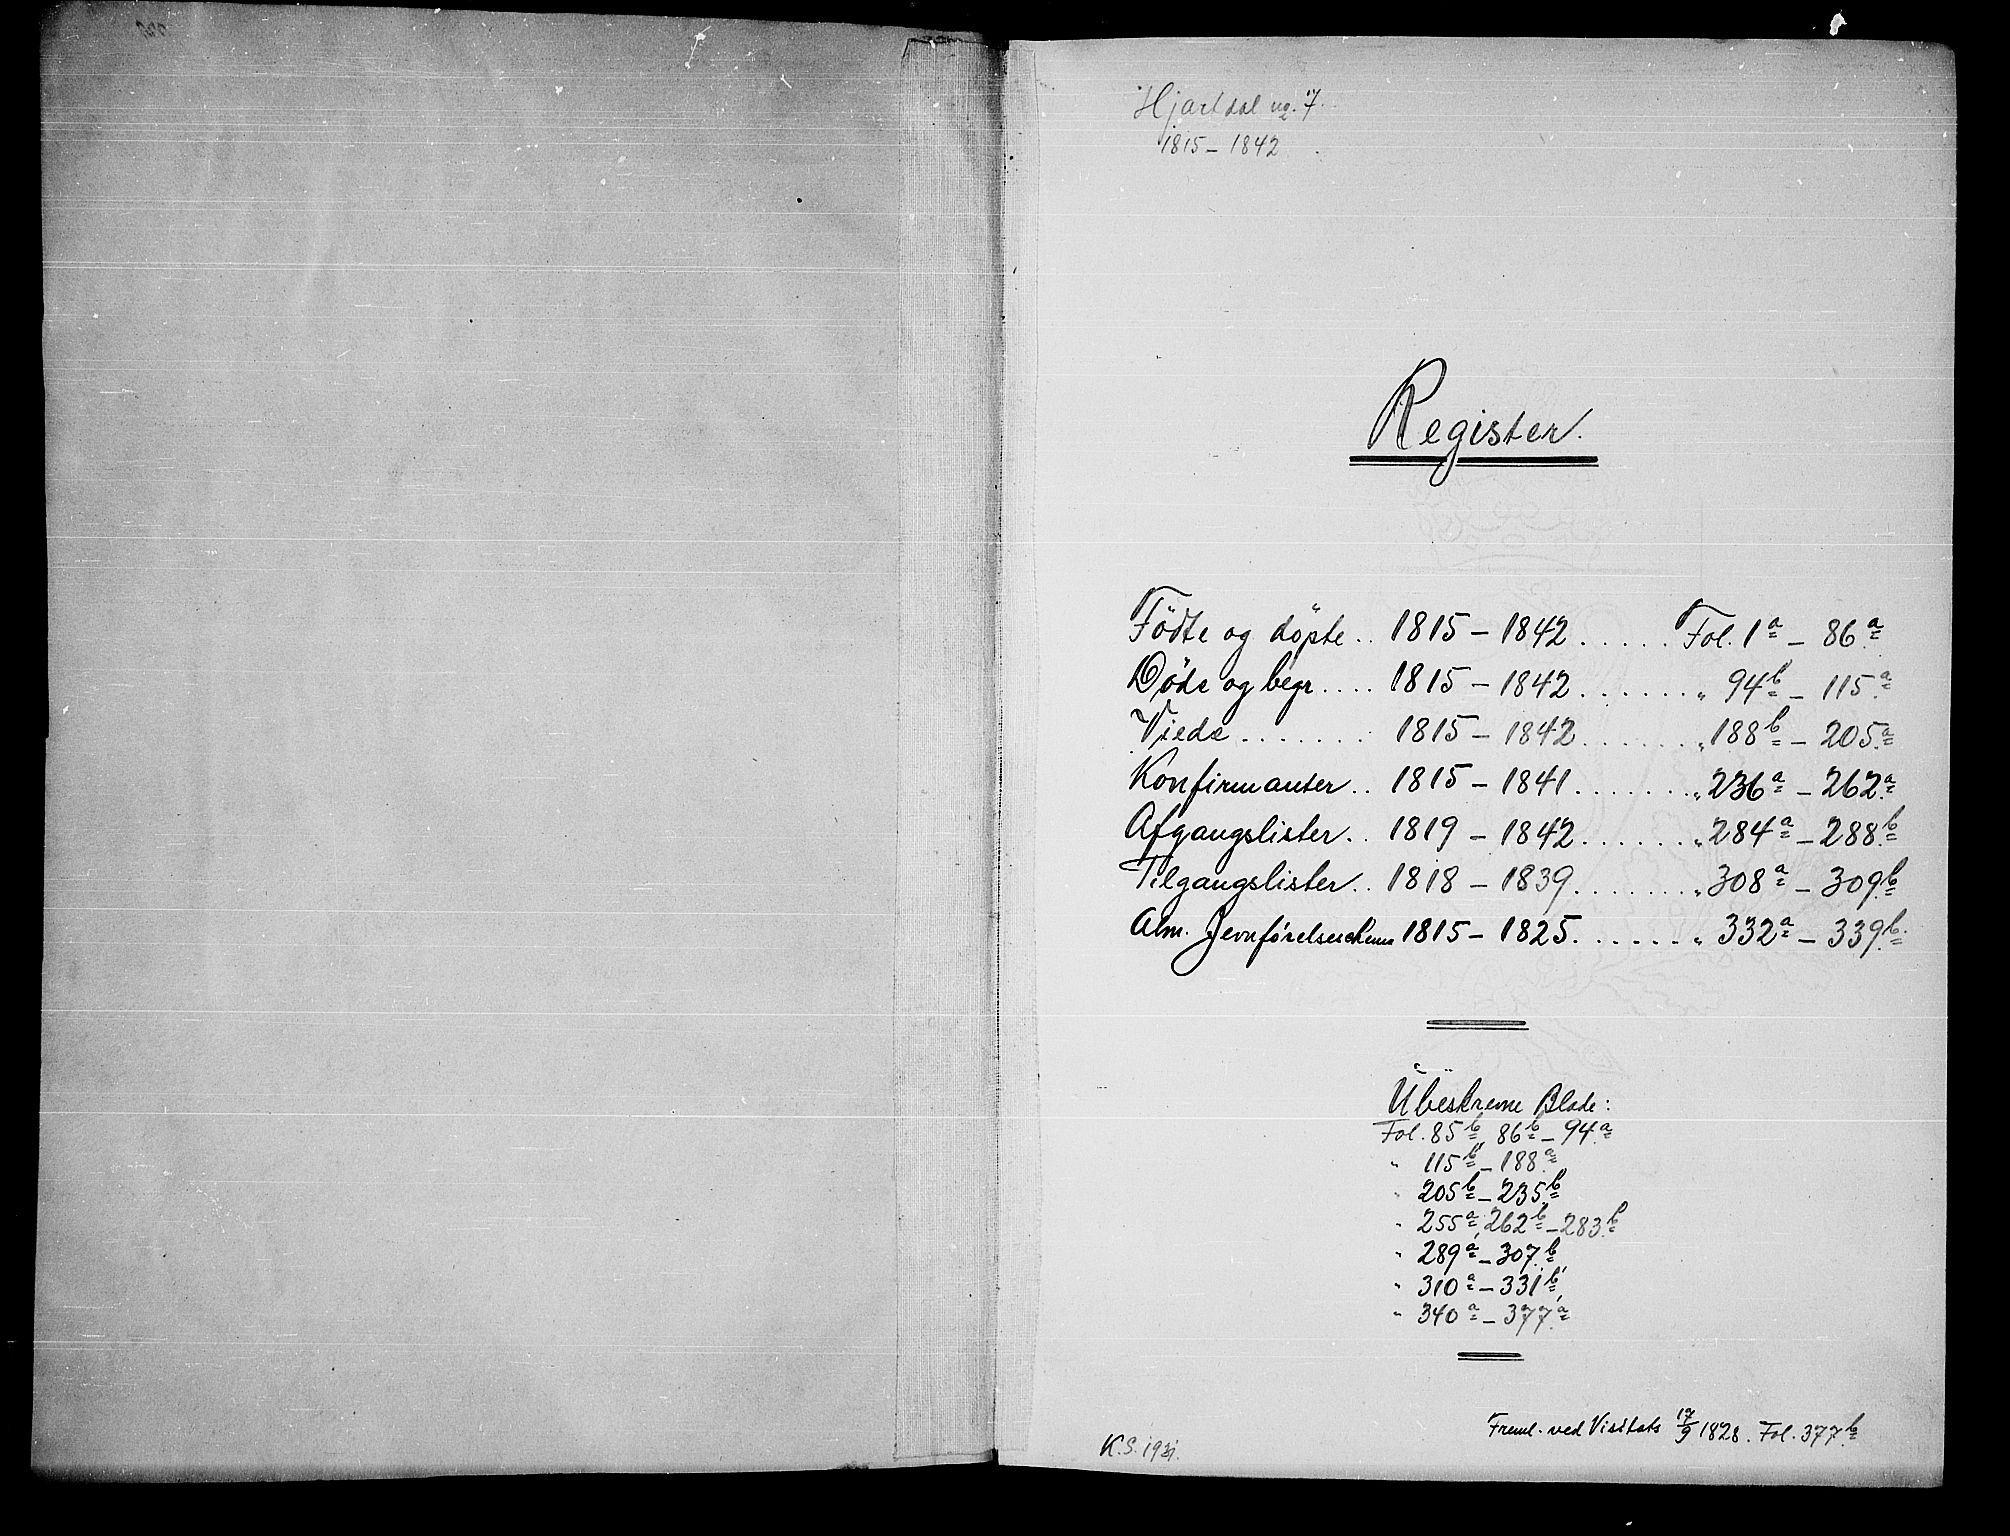 Hjartdal nr. 7.
1815 – 1842
Register.
Födte og döpte .. 1815 – 1842 ..... Fol. 1a – 86a
Døde og begr .... 1815 – 1842 ...... " 94b – 115a
Viede ....... 1815 – 1842 ...... " 188b – 205a
Konfirmanter .. 1815 – 1841 ....... " 236a – 262a
Afgangslister .. 1819 – 1842 ...... " 284a – 288b
Tilgangslister .. 1818 – 1839 ....... " 308a – 309b
Alm. Jevnførelseschema 1815 – 1825 ....... " 332a – 339b
Übeskrevne Blade:
Fol. 85b, 86b – 94a
" 115b – 188a
" 205b – 235b
" 255a, 262b – 283b
" 289a – 307b
" 310a – 331b
" 340a – 377a
Freml. ved Visitats 17/9 1828. Fol. 377b
K.S. 1931.